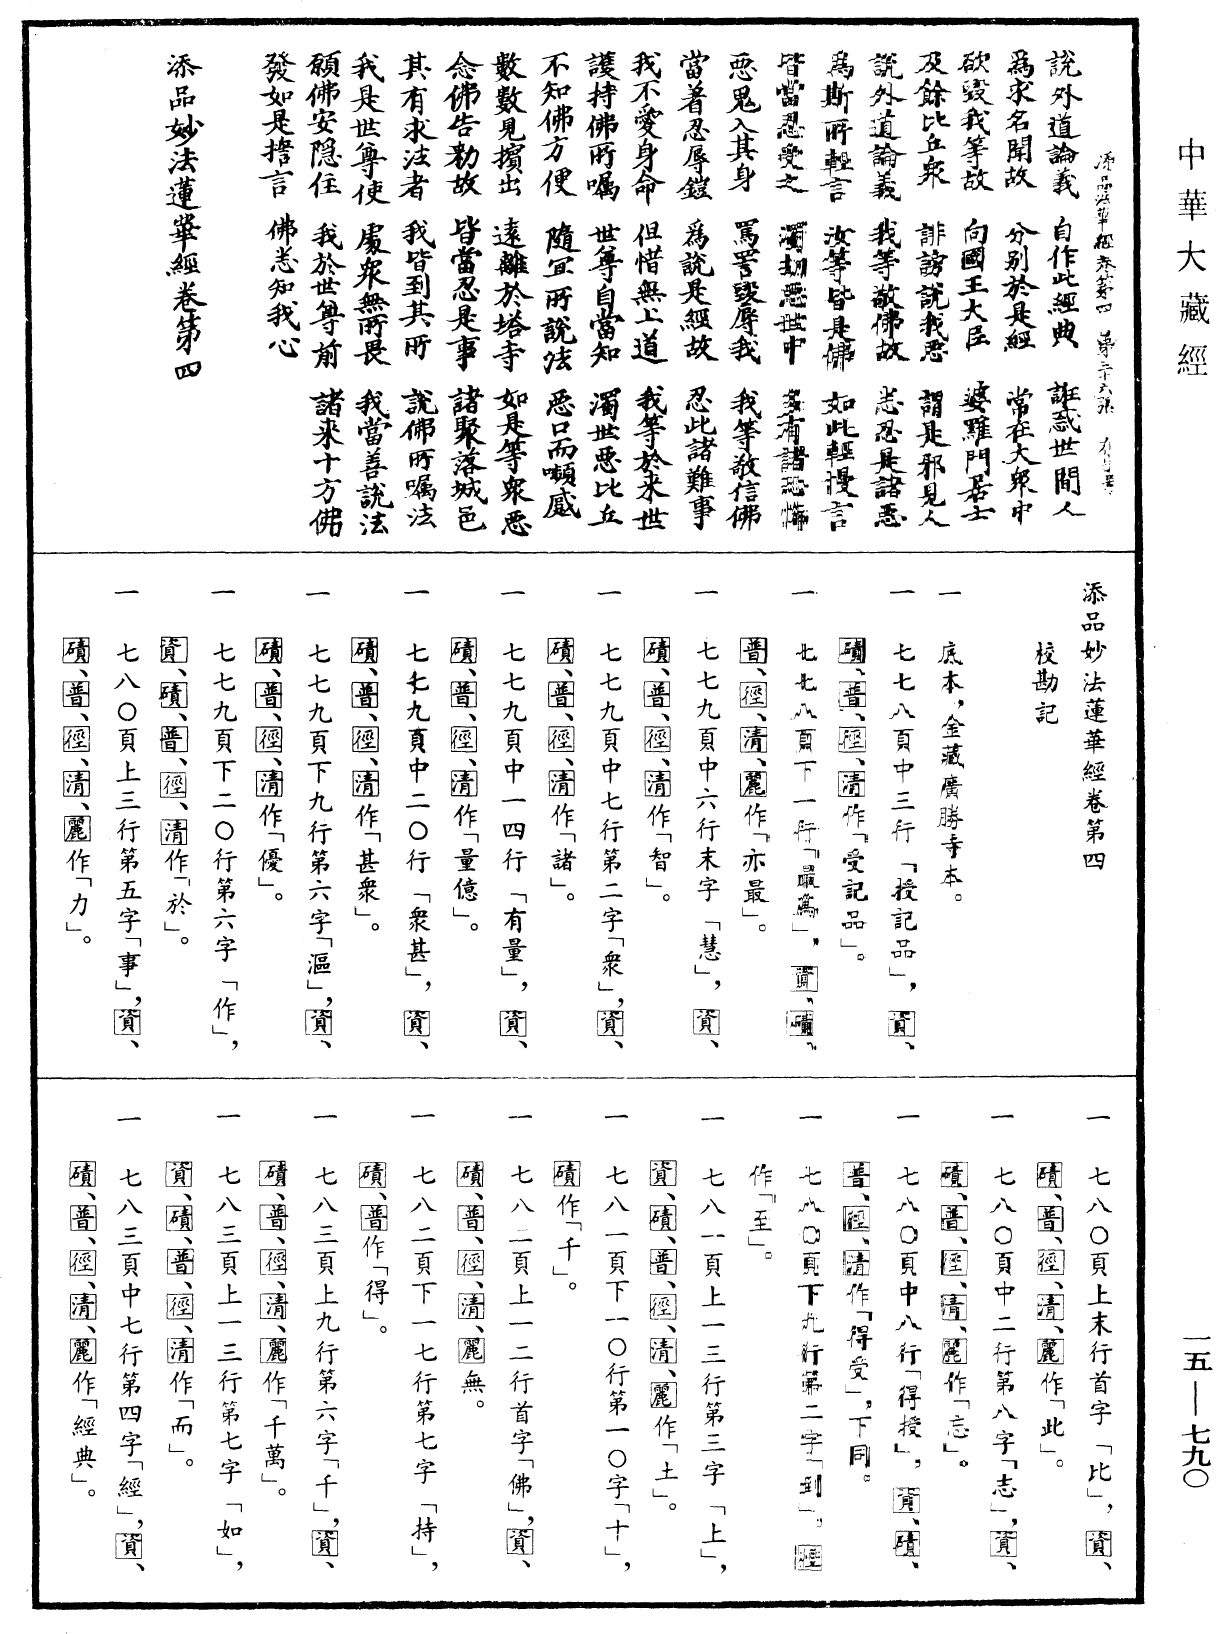 中華大藏經
添品法華經卷第四　第二十六張
說外道論義　自作此經典　誑惑世間人
為求名聞故　分別於是經　常在大衆中
欲毀我等故　向國王大臣　婆羅門居士
及餘比丘衆　誹謗說我惡　謂是邪見人
說外道論義　我等敬佛故　悉忍是諸惡
爲斯所輕言　汝等皆是佛　如此輕慢言
皆當忍受之　濁劫惡世中　多有諸恐怖
惡鬼入其身　罵詈毀辱我　我等敬信佛
當著忍辱鎧　爲說是經故　忍此諸難事
我不愛身命　但惜無上道　我等於來世
護持佛所囑　世尊自當知　濁世惡比丘
不知佛方便　隨宜所說法　惡口而嚬蹙
數數見擯出　遠離於塔寺　如是等衆惡
念佛告勅故　皆當忍是事　諸聚落城邑
其有求法者　我皆到其所　說佛所囑法
我是世尊使　處衆無所畏　我當善說法
願佛安隱住　我於世尊前　諸來十方佛
發如是誓言　佛悉知我心
添品妙法蓮華經卷第四
添品妙法蓮華經卷第四
校勘記
一　底本，金藏廣勝寺本。
一　七七八頁中三行「授記品」，資、
磧、普、徑、清作「受記品」。
一　七七八頁下一行「最爲」，資、磧、
普、徑、清、麗作「亦最」。
一　七七九頁中六行末字「慧」，資、
磧、普、徑、清作「智」。
一　七七九頁中七行第二字「衆」，資、
磧、普、徑、清作「諸」。
一　七七九頁中一四行「有量」，資、
磧、普、徑、清作「量億」。
一　七七九頁中二〇行「衆甚」，資、
磧、普、徑、清作「甚衆」。
一　七七九頁下九行第六字「漚」，資、
磧、普、徑、清作「優」。
一　七七九頁下二〇行第六字「作」，
資、磧、普、徑、清作「於」。
一　七八〇頁上三行第五字「事」，資、
磧、普、徑、清、麗作「力」。
一　七八〇頁上末行首字「比」，資、
磧、普、徑、清、麗作「此」。
一　七八〇頁中二行第八字「志」，資、
磧、普、徑、清、麗作「忘」。
一　七八〇頁中八行「得授」，資、磧、
普、徑、清作「得受」，下同。
一　七八〇頁下九行第二字「到」，徑
作「至」。
一　七八一頁上一三行第三字「上」，
資、磧、普、徑、清、麗作「土」。
一　七八一頁下一〇行第一〇字「十」，
磧作「千」。
一　七八二頁上一二行首字「佛」，資、
磧、普、徑、清、麗無。
一　七八二頁下一七行第七字「持」，
磧、普作「得」。
一　七八三頁上九行第六字「千」，資、
磧、普、徑、清、麗作「千萬」。
一　七八三頁上一三行第七字「如」，
資、磧、普、徑、清作「而」。
一　七八三頁中七行第四字「經」，資、
磧、普、徑、清、麗作「經典」。
一五—七九〇